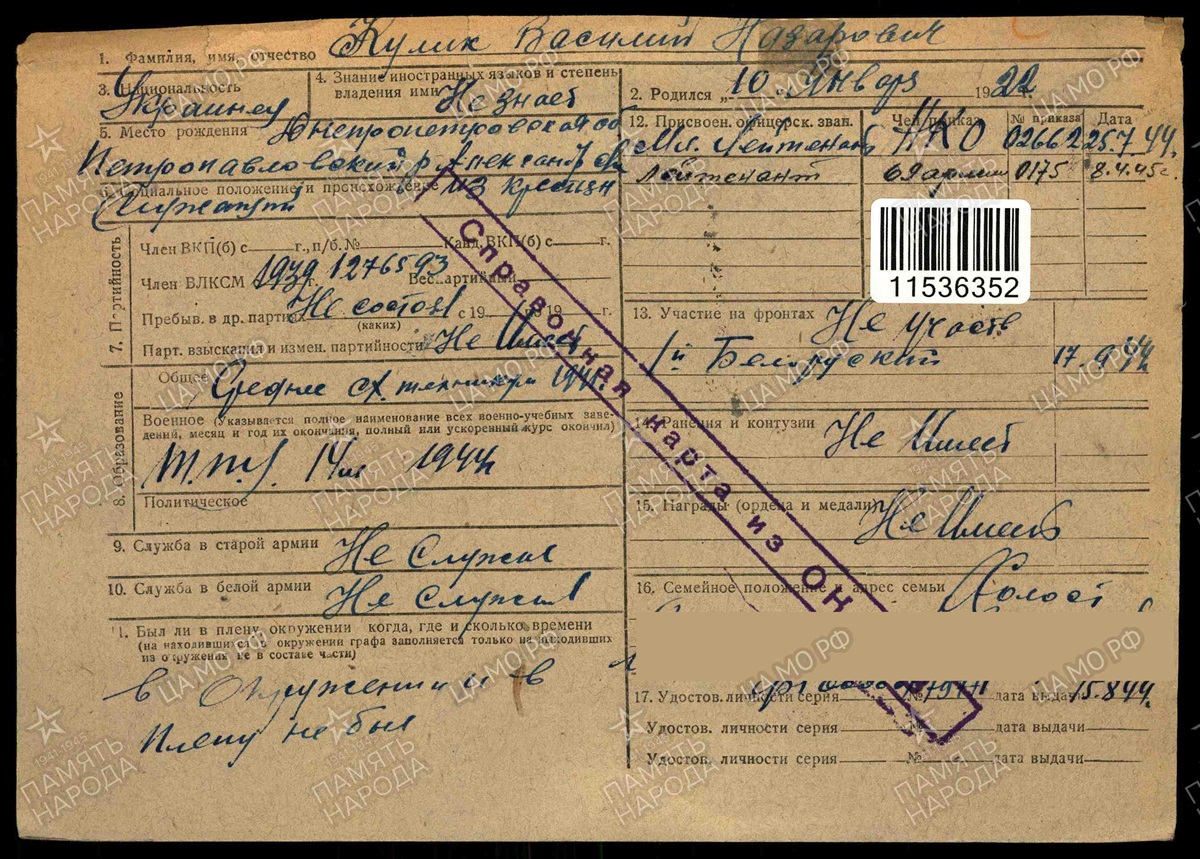 1. Фамилия, имя, отчество Кулик Василий Назарович
3. Национальность Украинец
4. Знание иностранных языков и степень
владения ими Не знает
2. Родился „10" Январь 1922
5. Место рождения Днепропетровская об
Петропавловский р Александровка
6. Социальное положение и происхождение из крестьян
Служащий
7. Партийность
Член ВКП(б) с г., п/б. № Канд. ВКП(б) с г.
Член ВЛКСМ 1939 г. 1276593 Беспартийный
Пребыв. в др. партиях Не состоял с 19 по 19 г.
(каких)
Парт. взыскания и измен. партийности Не Имеет
8. Образование
Общее Среднее с/х. техникум 1941
Военное (Указывается полное наименование всех военно-учебных заве-
дений, месяц и год их окончания, полный или ускоренный курс окончил)
1944
Политическое
9. Служба в старой армии Не служил
10. Служба в белой армии Не служил
11. Был ли в плену, окружении когда, где и сколько времени
(на находившихся в окружении графа заполняется только не выходивших
из окружения не в составе части)
в окружении и в
плену не был
12. Присвоен. офицерск. зван. Чей приказ № приказа Дата
Мл. Лейтенант НКО 02662 25.7.44.
Лейтенант 69 армии 0175 8.4.45г.
11536352
13. Участие на фронтах Не участв
1й Белорусский 17.9.44
14. Ранения и контузии Не Имеет
15. Награды (ордена и медали) Не Имеет
16. Семейное положение и адрес семьи Холост
17. Удостов. личности серия № дата выдачи 15.8.44.
Удостов. личности серия № дата выдачи
Удостов. личности серия № дата выдачи
Справочная карта из ОН
ПАМЯТЬ НАРОДА
ЦАМО.РФ
1941-1945